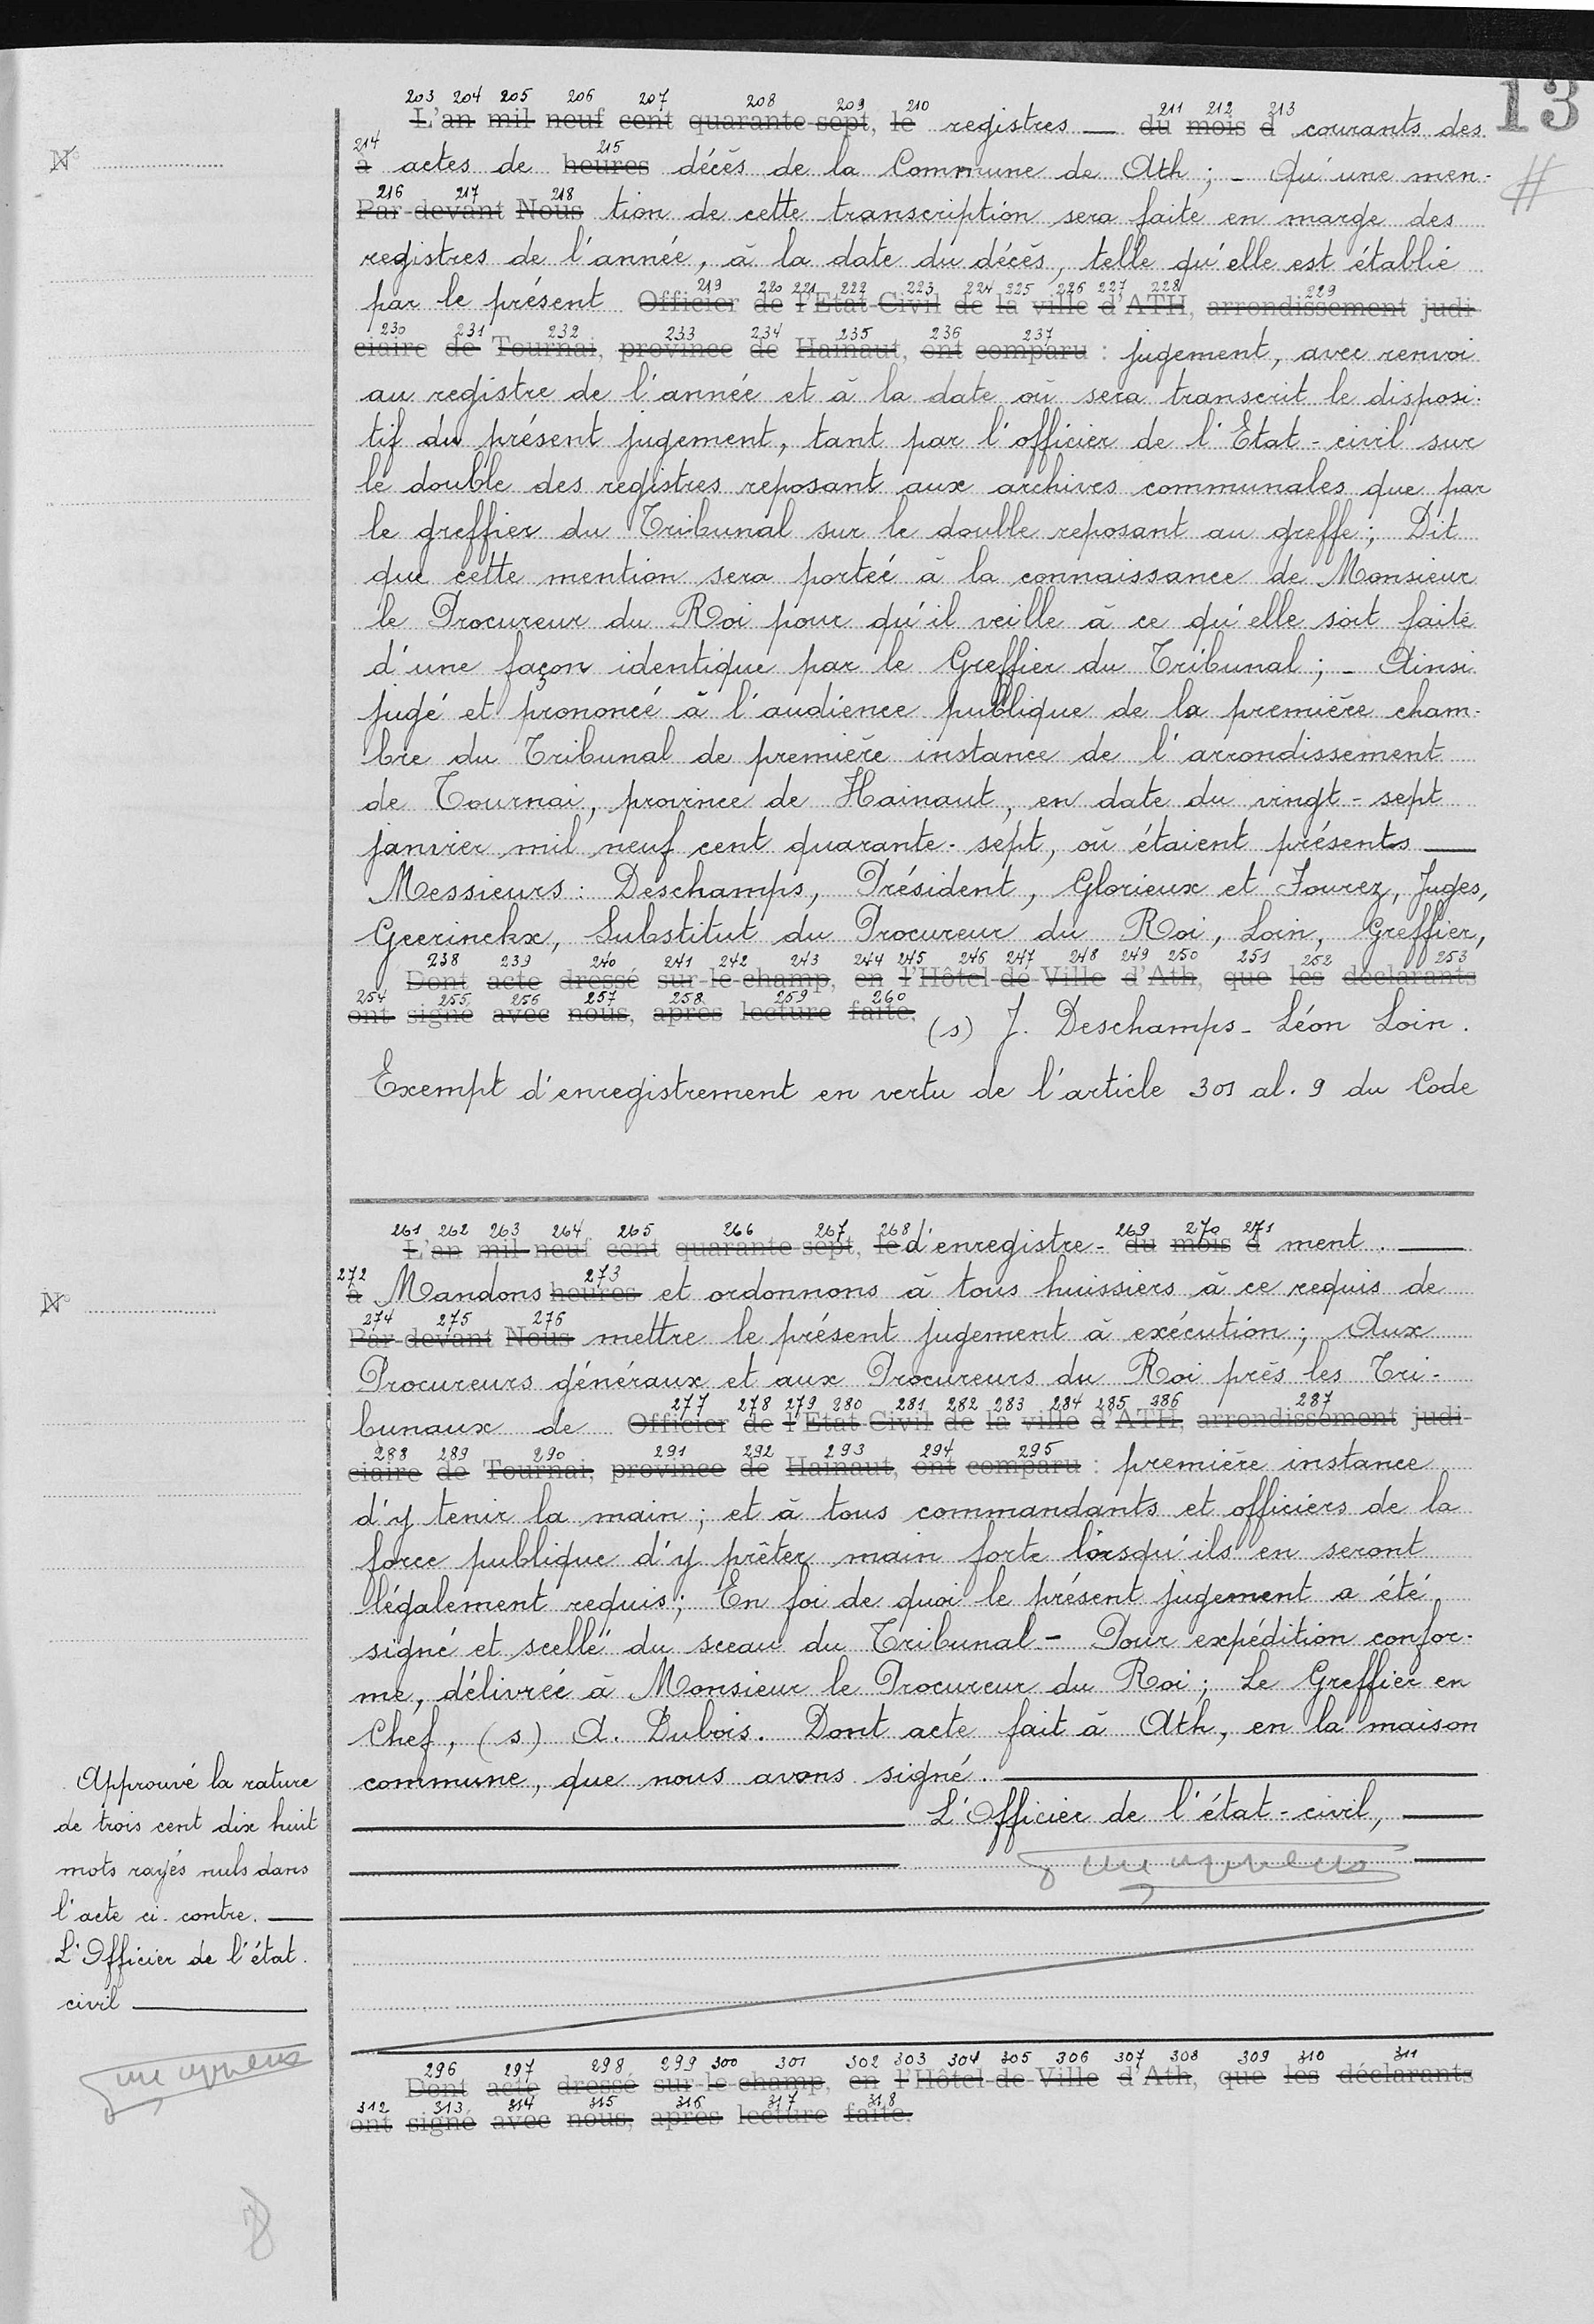 13
203 204 205 206 207 208 209 210 211 212 213
L'an mil neuf cent quarante-sept, le registres — du mois d courants des
214 215
à actes de heures décès de la Commune de Ath ; - Qu'une men-
216 217 218
Par-devant Nous tion de cette transcription sera faite en marge des
registres de l'année, à la date du décès, telle qu'elle est établie
219 220 221 222 223 224 225 226 227 228 229
par le présent Officier de l'Etat-Civil de la ville d'ATH, arrondissement judi-
230 231 232 233 234 235 236 237
ciaire de Tournai, province de Hainaut, ont comparu : jugement, avec renvoi
au registre de l'année et à la date où sera transcrit le disposi-
tif du présent jugement, tant par l'officier de l'Etat-civil sur
le double des registres reposant aux archives communales que par
le greffier du Tribunal sur le double reposant au greffe ; Dit
que cette mention sera portée à la connaissance de Monsieur
le Procureur du Roi pour qu'il veille à ce qu'elle soit faite
d'une façon identique par le Greffier du Tribunal ; - Ainsi
jugé et prononcé à l'audience publique de la première cham-
bre du Tribunal de première instance de l'arrondissement
de Tournai, province de Hainaut, en date du vingt-sept
janvier mil neuf cent quarante-sept, où étaient présents —
Messieurs : Deschamps, Président, Glorieux et Jourez, Juges,
Geerinckx, Substitut du Procureur du Roi, Loin, Greffier,
238 239 240 241 242 243 244 245 246 247 248 249 250 251 252 253
Dont acte dressé sur-le-champ, en l'Hôtel-de-Ville d'Ath, que les déclarants
254 255 256 257 258 259 260
ont signé avec nous, après lecture faite. (s) J. Deschamps - Léon Loin.
Exempt d'enregistrement en vertu de l'article 301 al. 9 du Code
N°
261 262 263 264 265 266 267 268 269 270 271
L'an mil neuf cent quarante-sept, le d'enregistre- du mois d ment. —
272 273
à Mandons heures et ordonnons à tous huissiers à ce requis de
274 275 276
Par-devant Nous mettre le présent jugement à exécution ; Aux
Procureurs généraux et aux Procureurs du Roi près les Tri-
277 278 279 280 281 282 283 284 285 386 287
bunaux de Officier de l'Etat-Civil de la ville d'ATH, arrondissement judi-
288 289 290 291 292 293 294 295
ciaire de Tournai, province de Hainaut, ont comparu : première instance
d'y tenir la main ; et à tous commandants et officiers de la
force publique d'y prêter main forte lorsqu'ils en seront
légalement requis ; En foi de quoi le présent jugement a été
signé et scellé du sceau du Tribunal - Pour expédition confor-
me, délivrée à Monsieur le Procureur du Roi ; Le Greffier en
Chef, (s) A. Dubois. Dont acte fait à Ath, en la maison
commune, que nous avons signé. —
L'Officier de l'état-civil, —
296 297 298 299 300 301 302 303 304 305 306 307 308 309 310 311
Dont acte dressé sur-le-champ, en l'Hôtel-de-Ville d'Ath, que les déclarants
312 313 314 315 316 317 318
ont signé avec nous, après lecture faite.
N°
Approuvé la rature
de trois cent dix huit
mots rayés nuls dans
l'acte ci-contre. —
L'Officier de l'état-
civil —